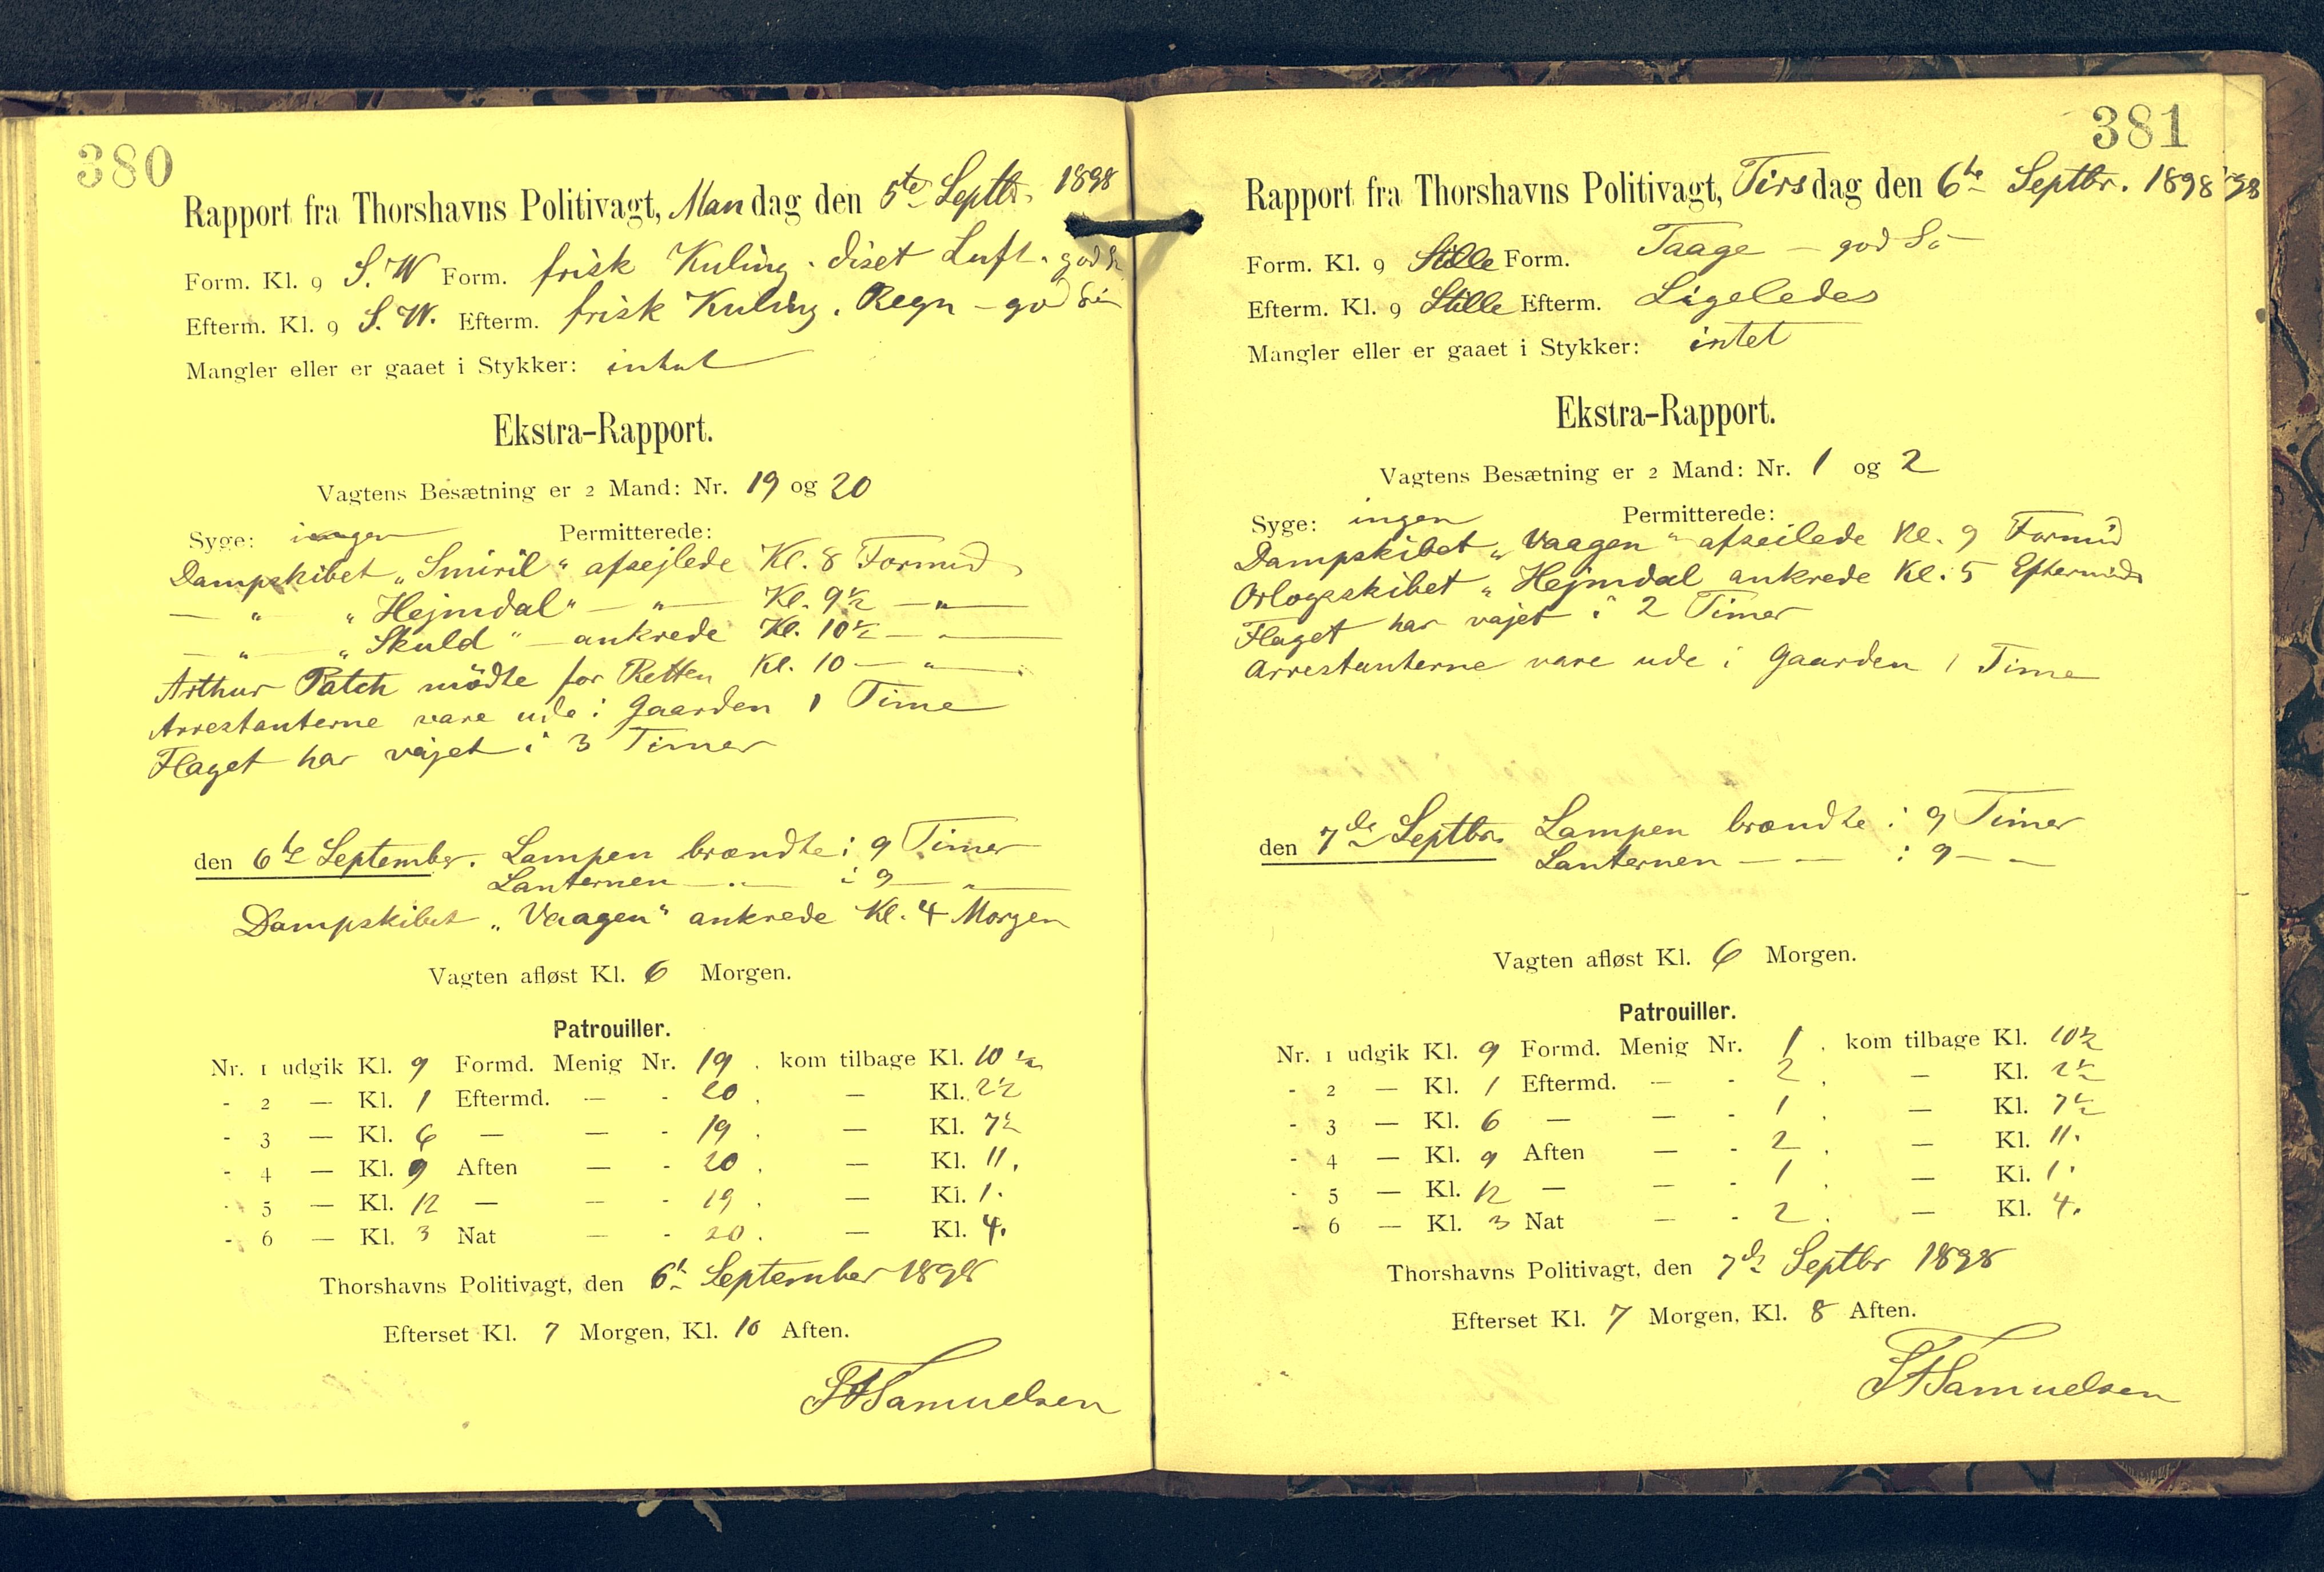 380
Rapport fra Thorshavns Politivagt, Mandag den 5te Septbr. 1898
Form. Kl. 9 S.W Form. frisk Kuling. diset Luft. god
Efterm. Kl. 9 S.W. Efterm. frisk Kuling. Regn – god Sö
Mangler eller er gaaet i Stykker: intet
Ekstra-Rapport.
Vagtens Besætning er 2 Mand: Nr. 19 og 20
Syge: ingen Permitterede:
Dampskibet „Smiril" afsejlede Kl. 8 Formd
— " — „Hejmdal" — " — Kl. 9½ — " —
— " — „Skuld" — ankrede Kl. 10½ — " —
Arthur Patch mödte for Retten Kl. 10 — " —
Arrestanterne vare ude i Gaarden 1 Time
Flaget har vajet i 3 Timer
den 6te September. Lampen brændte i 9 Timer
Lanternen — " — i 9 — " —
Dampskibet „Vaagen" ankrede Kl. 4 Morgen
Vagten afløst Kl. 6 Morgen.
Patrouiller.
Nr. 1 udgik Kl. 9 Formd. Menig Nr. 19. kom tilbage Kl. 10½
- 2 — Kl. 1 Eftermd. — - 20. — Kl. 2½
- 3 — Kl. 6 — — - 19. — Kl. 7½
- 4 — Kl. 9 Aften — - 20. — Kl. 11.
- 5 — Kl. 12 — — - 19. — Kl. 1.
- 6 — Kl. 3 Nat — - 20. — Kl. 4.
Thorshavns Politivagt, den 6te September 1898
Efterset Kl. 7 Morgen, Kl. 10 Aften.
Samuelsen
381
Rapport fra Thorshavns Politivagt, Tirsdag den 6te Septbr. 1898 98
Form. Kl. 9 Stille Form. Taage – god Sö
Efterm. Kl. 9 Stille Efterm. Ligeledes
Mangler eller er gaaet i Stykker: intet
Ekstra-Rapport.
Vagtens Besætning er 2 Mand: Nr. 1 og 2
Syge: ingen Permitterede:
Dampskibet „Vaagen" afseilede Kl. 9 Formd
Orlogsskibet „Hejmdal ankrede Kl. 5 Eftermd
Flaget har vajet i 2 Timer
Arrestanterne vare ude i Gaarden 1 Time
den 7de Septbr. Lampen brændte i 9 Timer
Lanternen — — i 9 — —
Vagten afløst Kl. 6 Morgen.
Patrouiller.
Nr. 1 udgik Kl. 9 Formd. Menig Nr. 1. kom tilbage Kl. 10½
- 2 — Kl. 1 Eftermd. — - 2. — Kl. 2½
- 3 — Kl. 6 — — - 1. — Kl. 7½
- 4 — Kl. 9 Aften — - 2. — Kl. 11.
- 5 — Kl. 12 — — - 1. — Kl. 1.
- 6 — Kl. 3 Nat — - 2. — Kl. 4.
Thorshavns Politivagt, den 7de Septbr 1898
Efterset Kl. 7 Morgen, Kl. 8 Aften.
Samuelsen